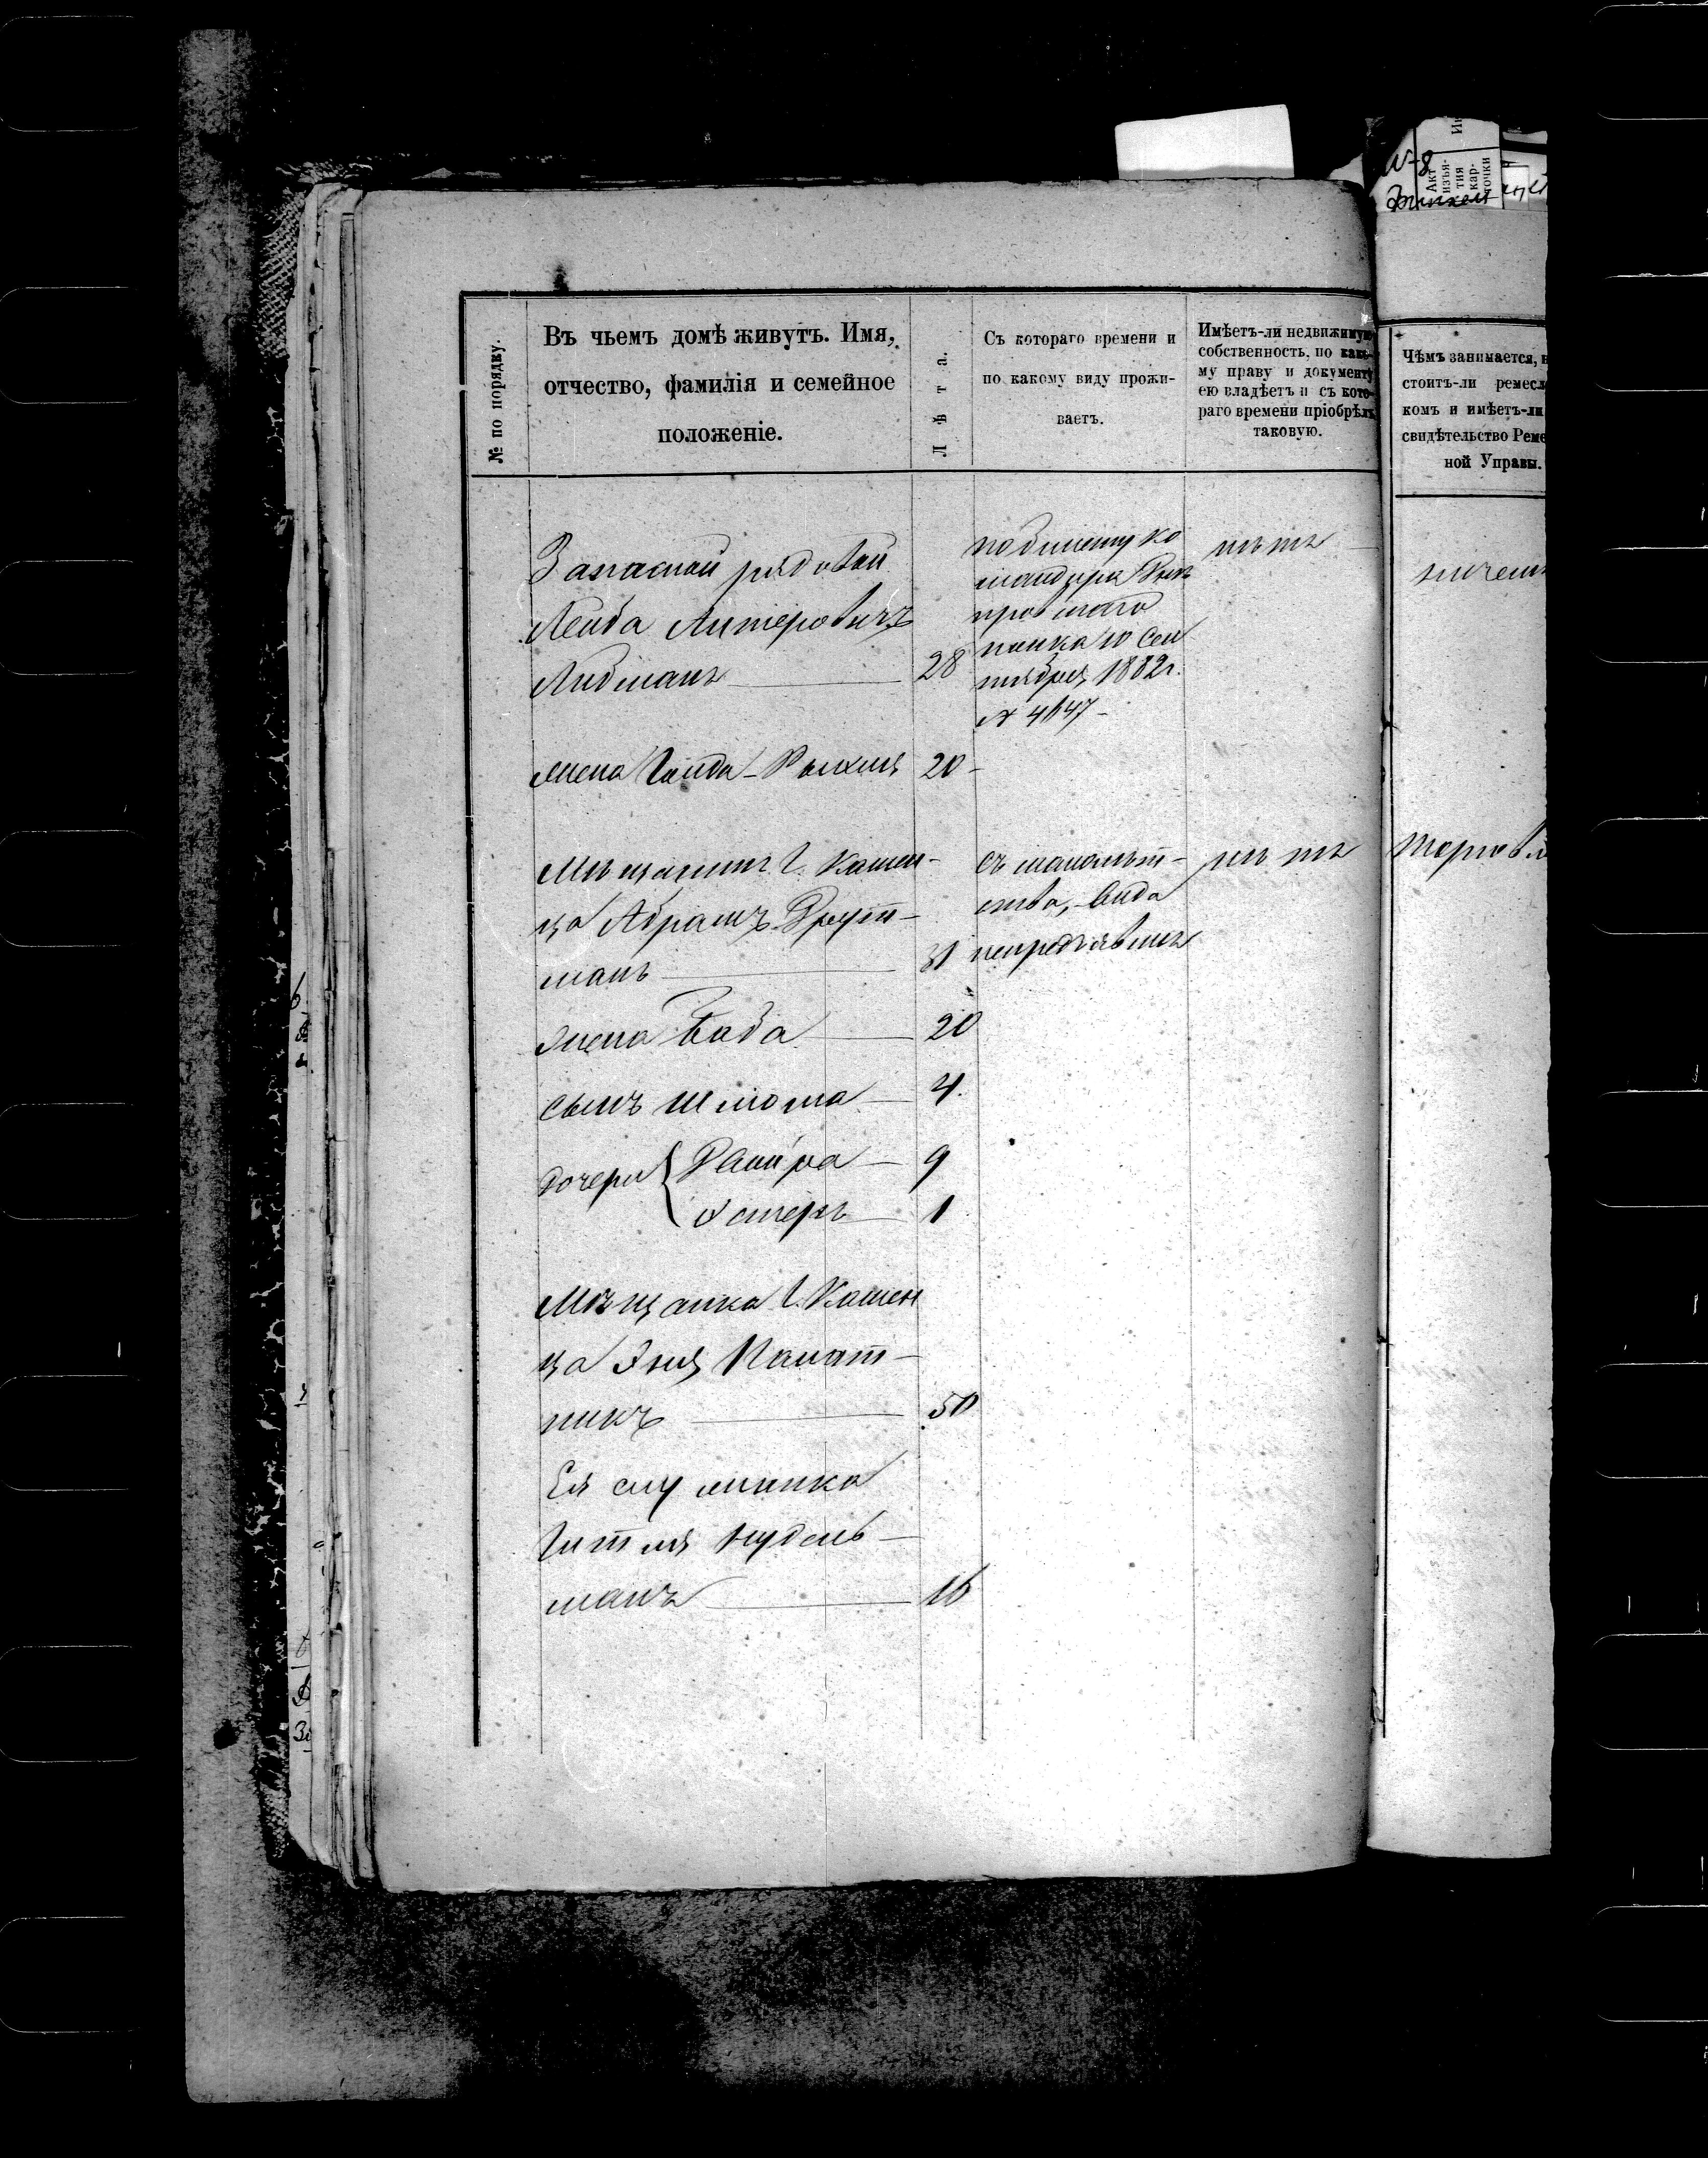 № по порядку.
Въ чьемъ домѣ живутъ. Имя,
отчество, фамилія и семейное
положеніе.
Лѣта.
Съ котораго времени и
по какому виду прожи-
ваетъ.
Имѣетъ-ли недвижимую
собственность, по како-
му праву и документу
ею владѣетъ и съ кото-
раго времени пріобрѣлъ
таковую.
Чѣмъ занимается,
стоитъ-ли ремесл
комъ и имѣетъ-ли
свидѣтельство Реме
ной Управы.
Акт
изъя-
тия
кар-
точки
Запасной рядовой
Лейба Литеровичъ
Либманъ 28
по билету ко
мандира
полка 10 Сен
тября 1882 г.
№ 4647
нѣтъ
ничемъ
жена Гинда-Рыхля 20
Мѣщанинъ г. Камен-
ца Абрамъ Грут-
манъ 31
съ малолѣт-
ства, вида
непредъявилъ
нѣтъ
Торговл
жена Баба 20
сынъ Шлома 4
дочери { Двойра 9
Эстеръ 1
Мѣщанка г. Камен
ца Эня Палат-
никъ 50
Ея служанка
Гитля Нудель-
манъ 16